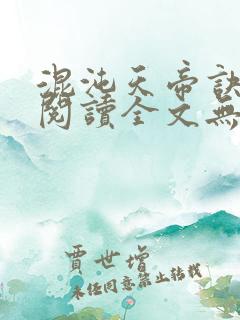 混沌天帝訣
閱讀全文無
賈世增
未经同意禁止转载